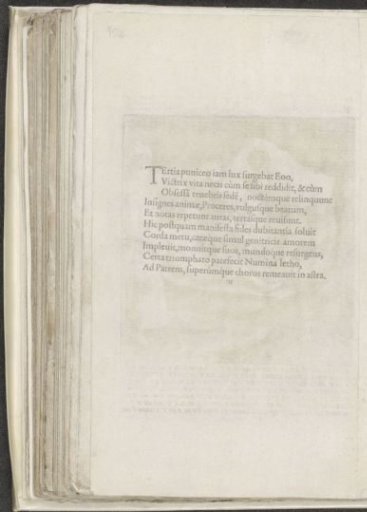 TErtia puniceo iam lux surgebat Eoo,
Victrix vita necis cùm se sibi reddidit, & cùm
Obsessâ tenebris sede, noctémque relinquunt
Insignes animæ, Proceres, vulgusque beatum,
Et notas repetunt auras, terrasque reuisunt.
Hic postquam manifesta fides dubitantia soluit
Corda metu, caræque simul genetricis amorem
Impleuit, monuitque suos, mundoque resurgens,
Certa triumphato patefecit Numina letho,
Ad Patrem, superûmque choros remeauit in astra.